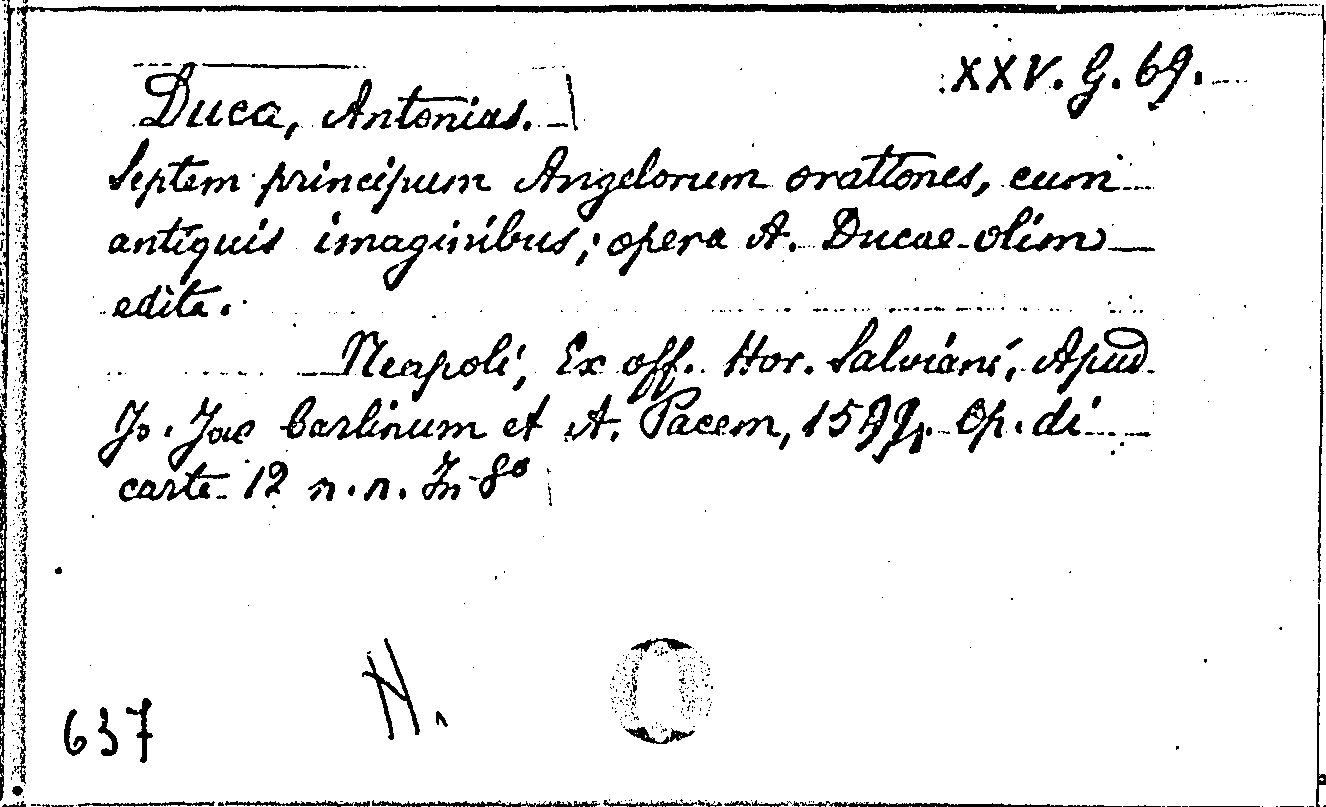 XXV. G. 69.
Duca, Antonius.
Septem principum Angelorum orationes, cum
antiquis imaginibus; opera A. Ducae olim
edita.
Neapoli, Ex off. Hor. Salviani, Apud
Jo. Jac Carlinum et A. Pacem, 1594. Op. di
carte 12 n.n. In 8º
N.
637